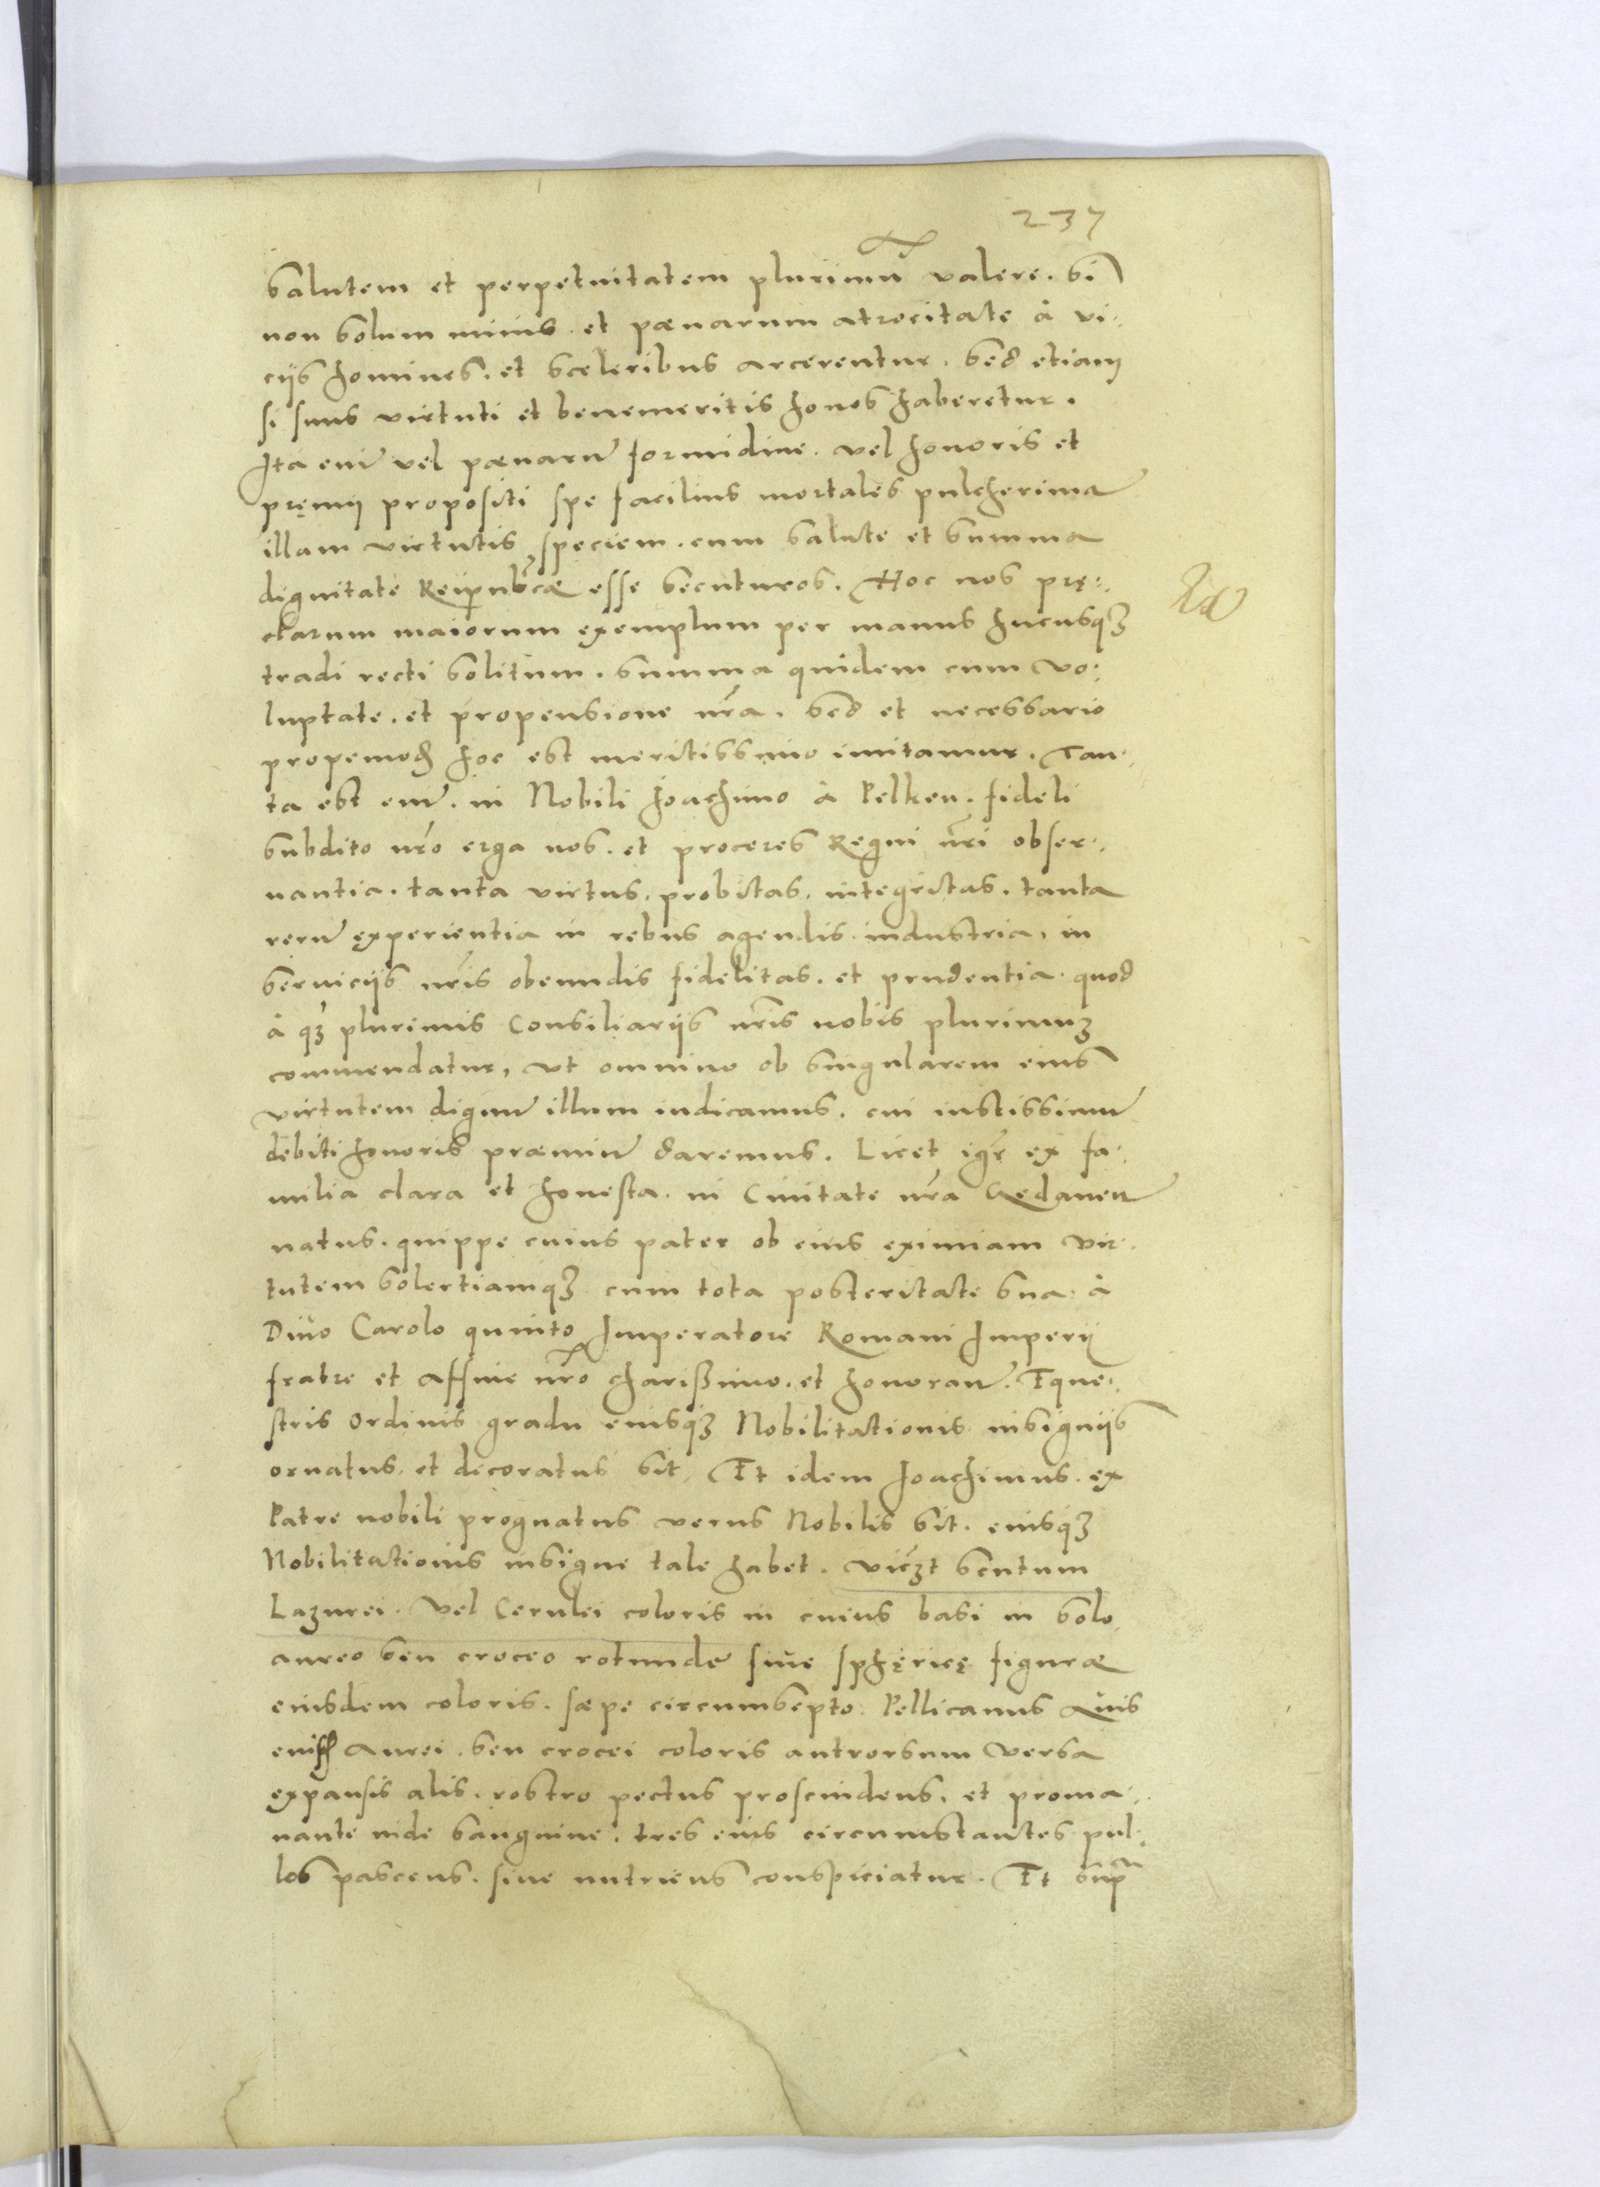 237
Salutem et perpetuitatem plurimū valere. Si
non solum minis. et pœnarum atrocitate à vi:
cijs homines. et sceleribus arcerentur. Sed etiam
si suus virtuti et benemeritis honos haberetur.
Ita enī vel pœnarū formidine. vel honoris et
pręmij propositi spe facilius mortales pulcherimā
illam virtutis speciem. cum salute et summa
dignitate Reipub̃cæ esse secuturos. Hoc nos prę:
clarum maiorum exemplum per manus hucusqȝ
tradi recti solitum. summa quidem cum vo:
luptate. et propensione nr̃a. Sed et necessario
propemoð hoc est meritissimo imitamur. Tan:
ta est enī. in Nobili Joachimo à Pelken. fideli
subdito nr̃o erga nos. et proceres Regni nr̃i obser:
uantia. tanta virtus. probitas. integritas. tanta
rerū experientia in rebus agendis industria. in
seruicijs nr̃is obeundis fidelitas. et prudentia. quod
à qȝ plurimis Consiliarijs nr̃is nobis plurimuȝ
commendatur, vt omnino ob singularem eius
virtutem dignū illum iudicamus. cui iustissimū
debiti honoris præmiū daremus. Licet igr̃ ex fa:
milia clara et honesta. in Ciuitate nr̃a Gedanen̄
natus. quippe cuius pater ob eius eximiam vir:
tutem solertiamqȝ cum tota posteritate sua. à
Diuo Carolo quinto Imperatore Romani Imperij
fratre et Affine nr̃o charißimo. et honoran̄. Eque:
stris Ordinis gradu eiusqȝ Nobilitationis insignijs
ornatus. et decoratus sit. Et idem Joachimus. ex
Patre nobili prognatus verus Nobilis sit. eiusqȝ
Nobilitationis insigne tale habet. vicȝt scutum
Lazurei. Vel Cerulei coloris in cuius basi in solo
aureo seu croceo rotundæ siue sphęricę figuræ
eiusdem coloris. sæpe circumsepto. Pellicanus Auis
Aurei. seu crocei coloris antrorsum versa
expansis alis. rostro pectus proscindens. et proma:
nante inde sanguine. tres eius circumstantes pul:
los pascens. siue nutriens conspiciatur. Et supr̃